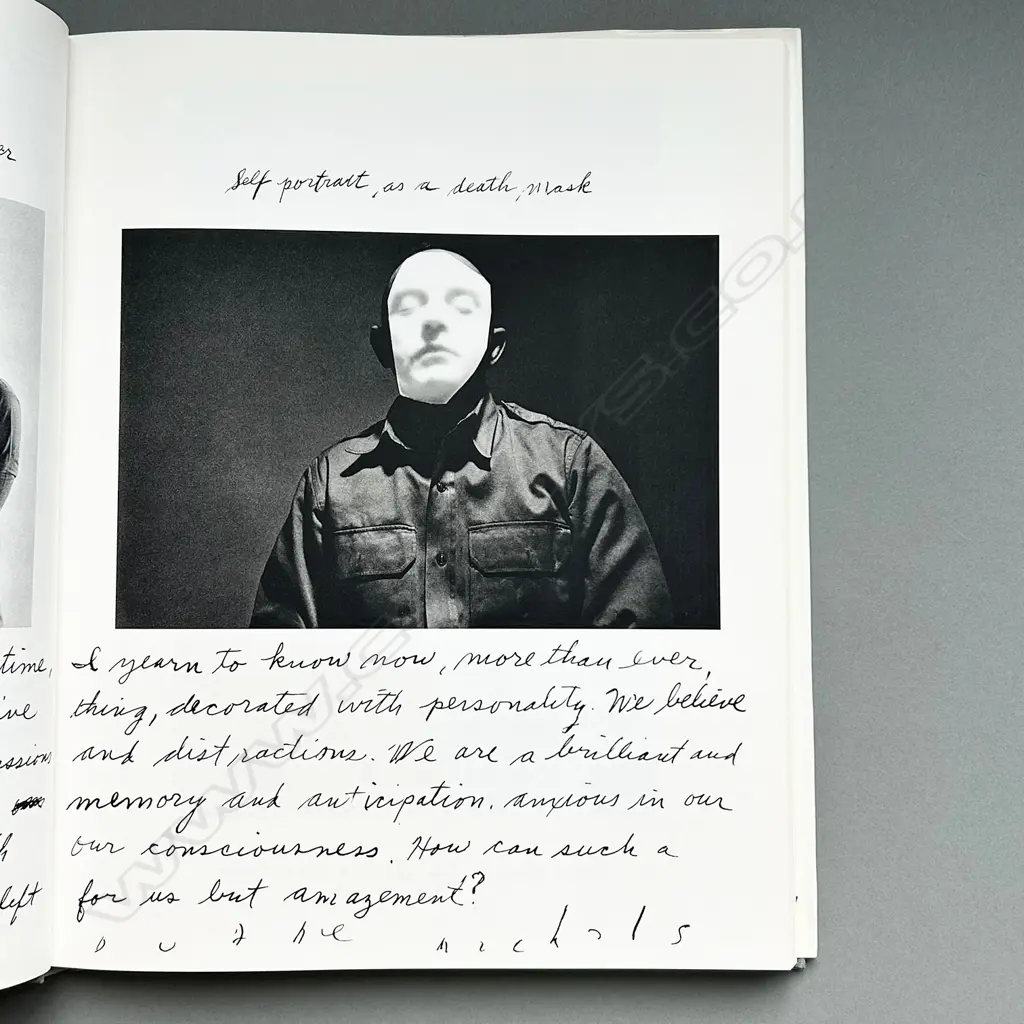 Self portrait, as a death, mask
time, I yearn to know now, more than ever,
ive thing, decorated with personality. We believe
ssions and distractions. We are a brilliant and
memory and anticipation. anxious in our
h our consciousness. How can such a
left for us but amazement?
Duane Michals